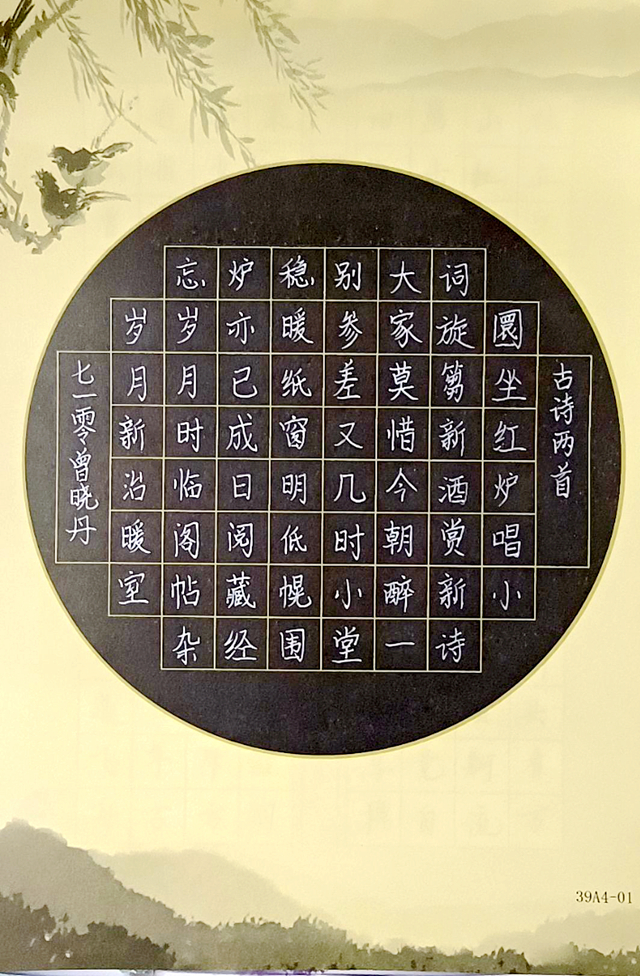 古诗两首
圜坐红炉唱小
词旋篘新酒赏新诗
大家莫惜今朝醉一
别参差又几时小堂
稳暖纸窗明低幌围
炉亦已成日阅藏经
忘岁月时临阁帖杂
岁月新治暖室
七一零曾晓丹
39A4-01